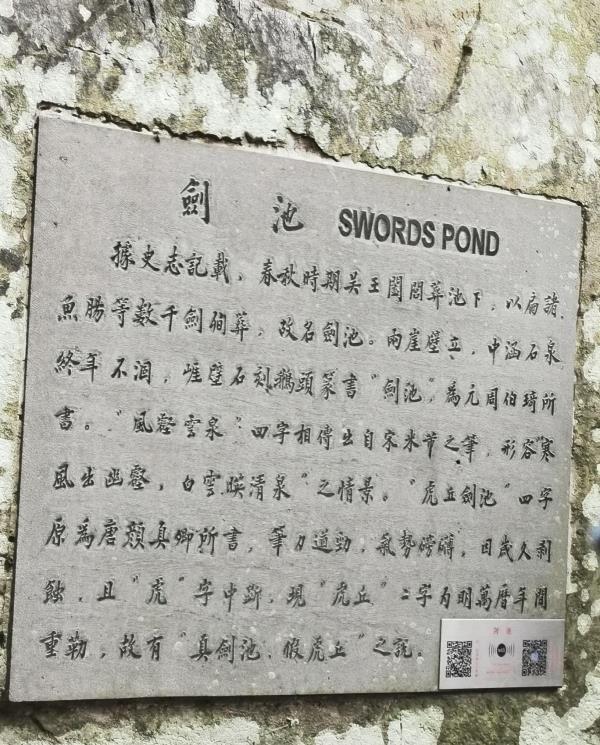 劍 池 SWORDS POND
據史志記載，春秋時期吴王闔閭葬池下，以扁諸、
魚腸等數千劍殉葬，故名劍池。兩崖壁立，中涵石泉，
終年不涸，崖壁石刻鵝頭篆書“劍池”，為元周伯琦所
書。“風壑雲泉”四字相傳出自宋米芾之筆，形容“寒
風出幽壑，白雲映清泉”之情景。“虎丘劍池”四字
原為唐顔真卿所書，筆力遒勁，氣勢磅礴，因歲久剥
蝕，且“虎”字中斷，現“虎丘”二字為明萬曆年間
重勒，故有“真劍池、假虎丘”之說。